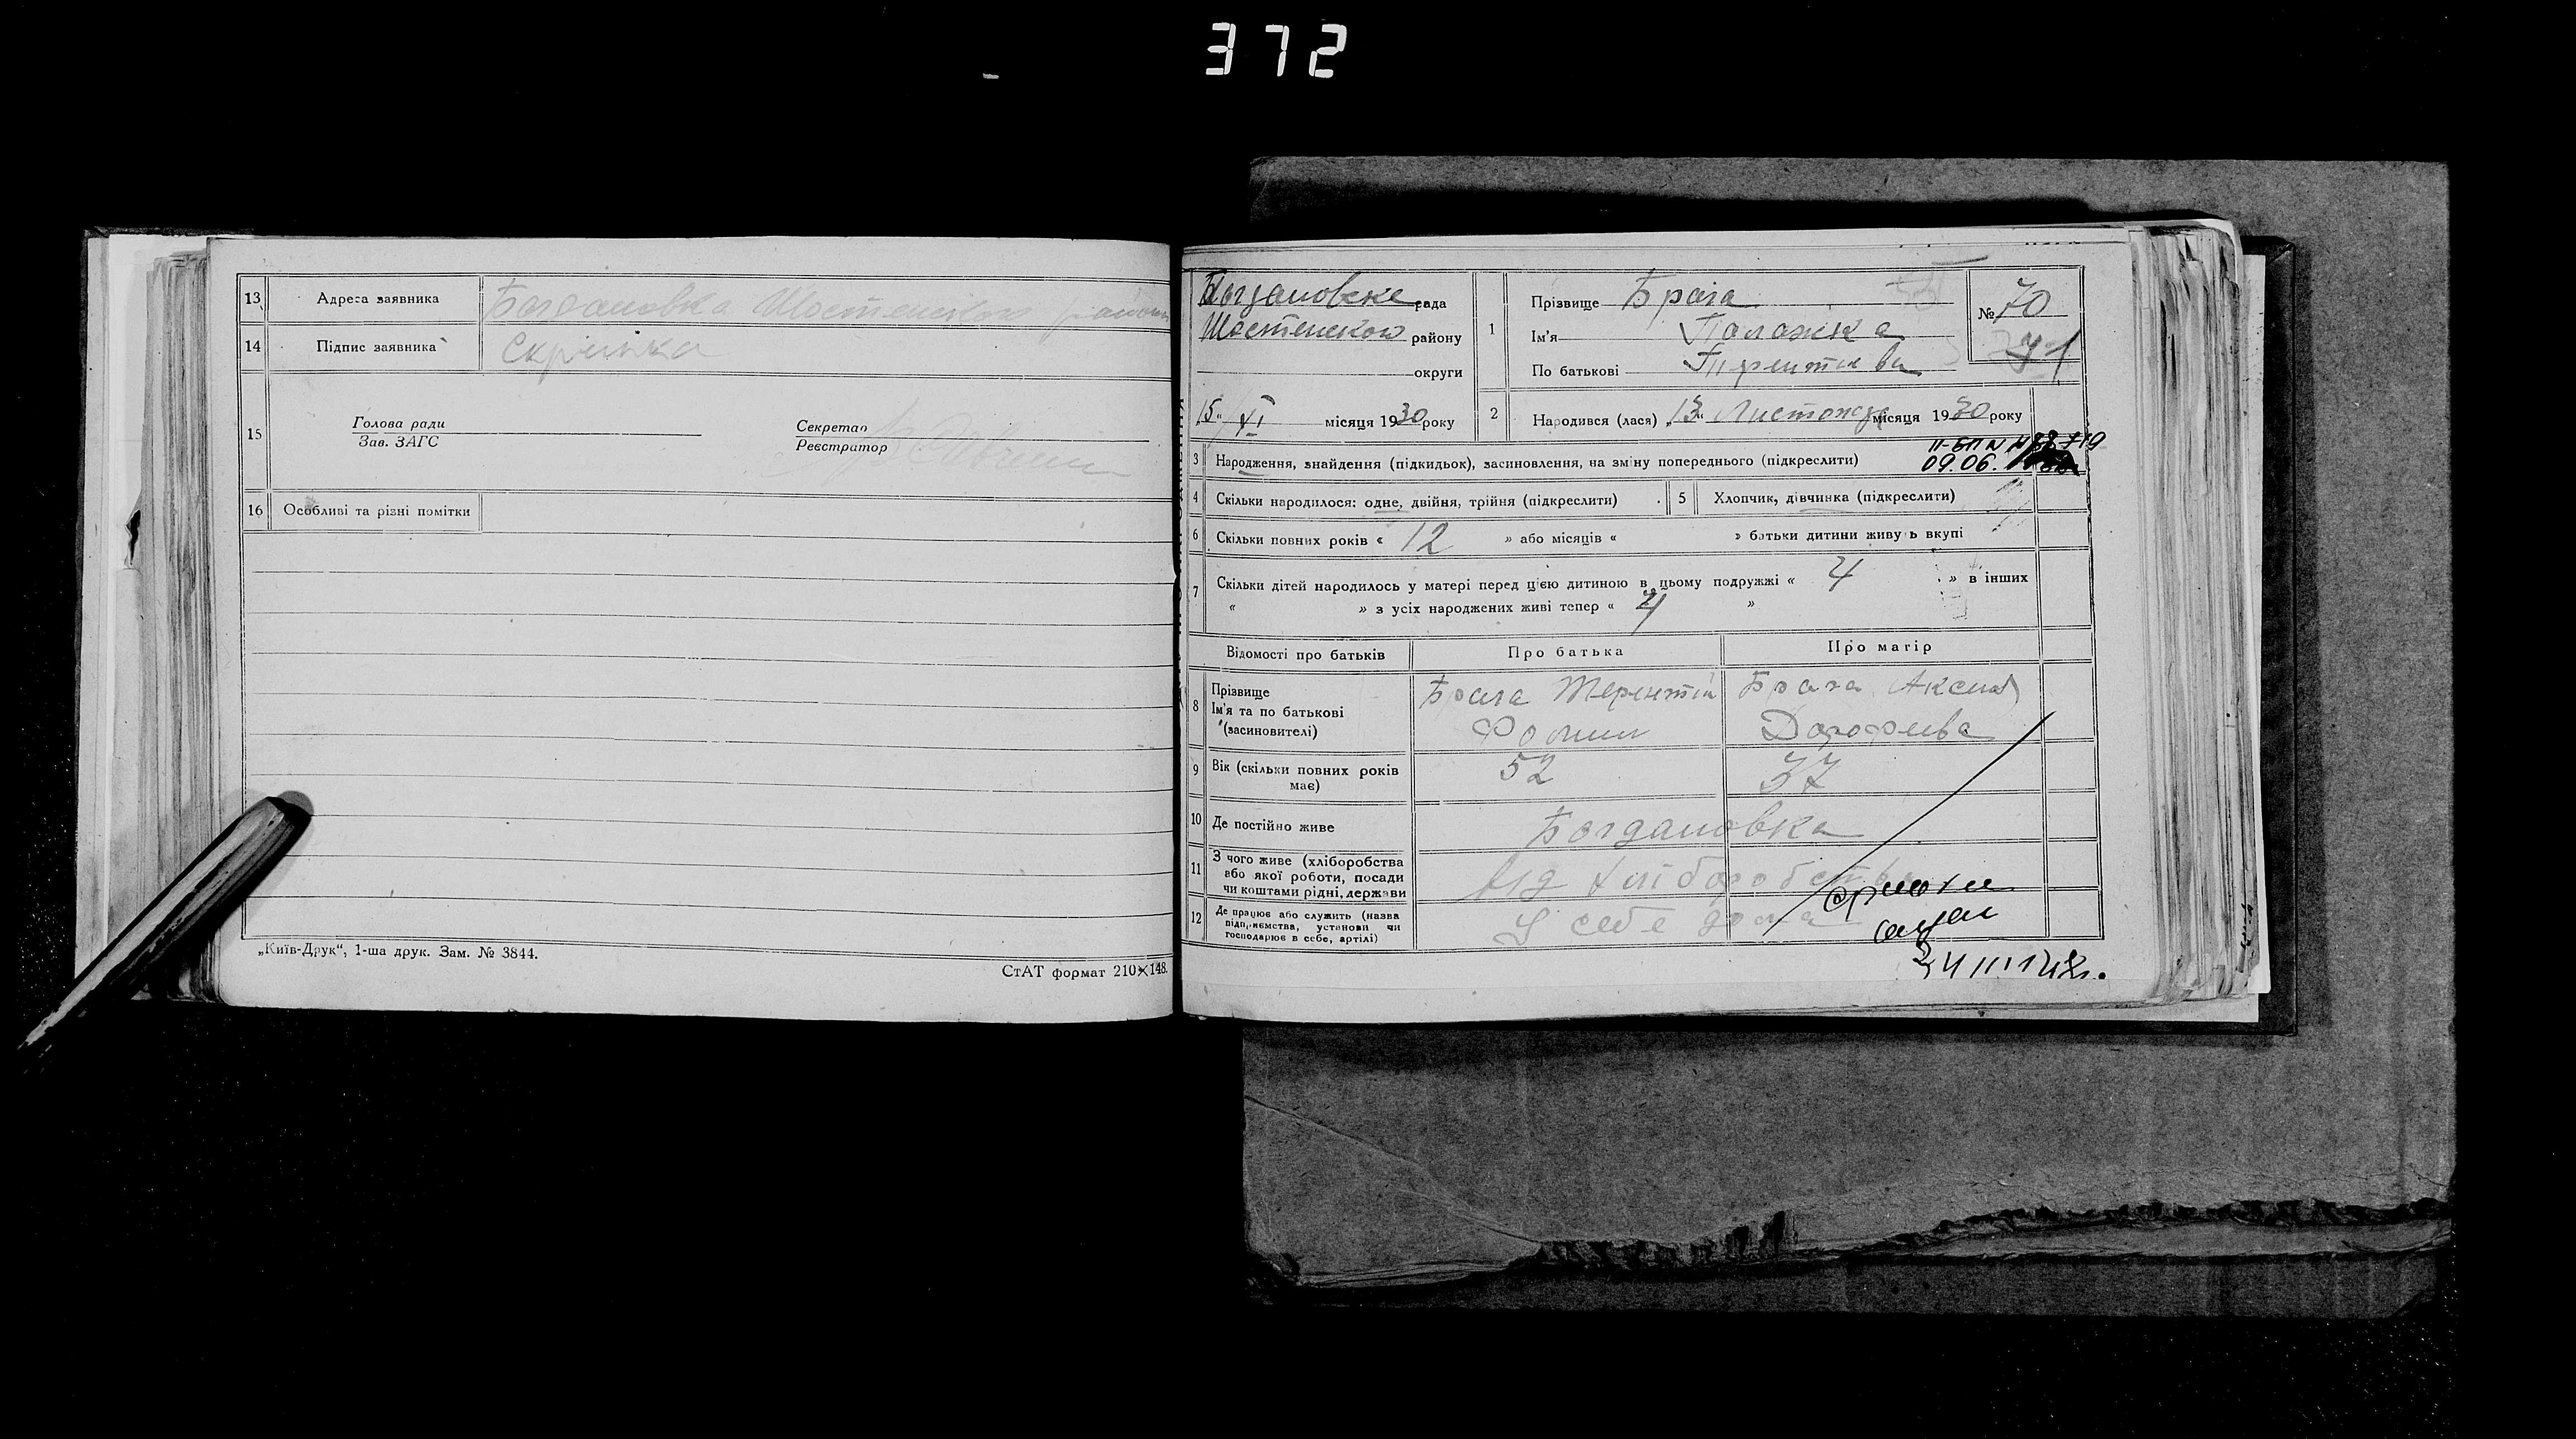 372
13 Адреса заявника Богдановка Шостенского району
14 Підпис заявника Скрипка
15 Голова ради Секретар
Зав. ЗАГС Реєстратор
16 Особливі та різні помітки
„Київ-Друк“, 1-ша друк. Зам. № 3844.
СтАТ формат 210×148.
Богдановске рада
Шостенского району
округи
15 " XI місяця 1930 року
1 Прізвище Брага
Ім'я Палажка
По батькові Терентиева
№ 70
71
2 Народився (лася) „13" Листопада місяця 1930 року
3 Народження, знайдення (підкидьок), засиновлення, на зміну попереднього (підкреслити)
09.06.
4 Скільки народилося: одне, двійня, трійня (підкреслити) 5 Хлопчик, дівчинка (підкреслити)
6 Скільки повних років « 12 » або місяців « » батьки дитини живуть вкупі
7 Скільки дітей народилось у матері перед цією дитиною в цьому подружжі « 4 » в інших
« » з усіх народжених живі тепер « 4 »
Відомості про батьків Про батька Про матір
8 Прізвище Ім'я та по батькові (засиновителі) Брага Терентій Фомин Брага Аксинья Дорофеева
9 Вік (скільки повних років має) 52 37
10 Де постійно живе Богдановка
11 З чого живе (хліборобства або якої роботи, посади чи коштами рідні, держави Від хліборобства
12 Де працює або служить (назва відприємства, установи чи господарює в себе, артілі) У себе дома